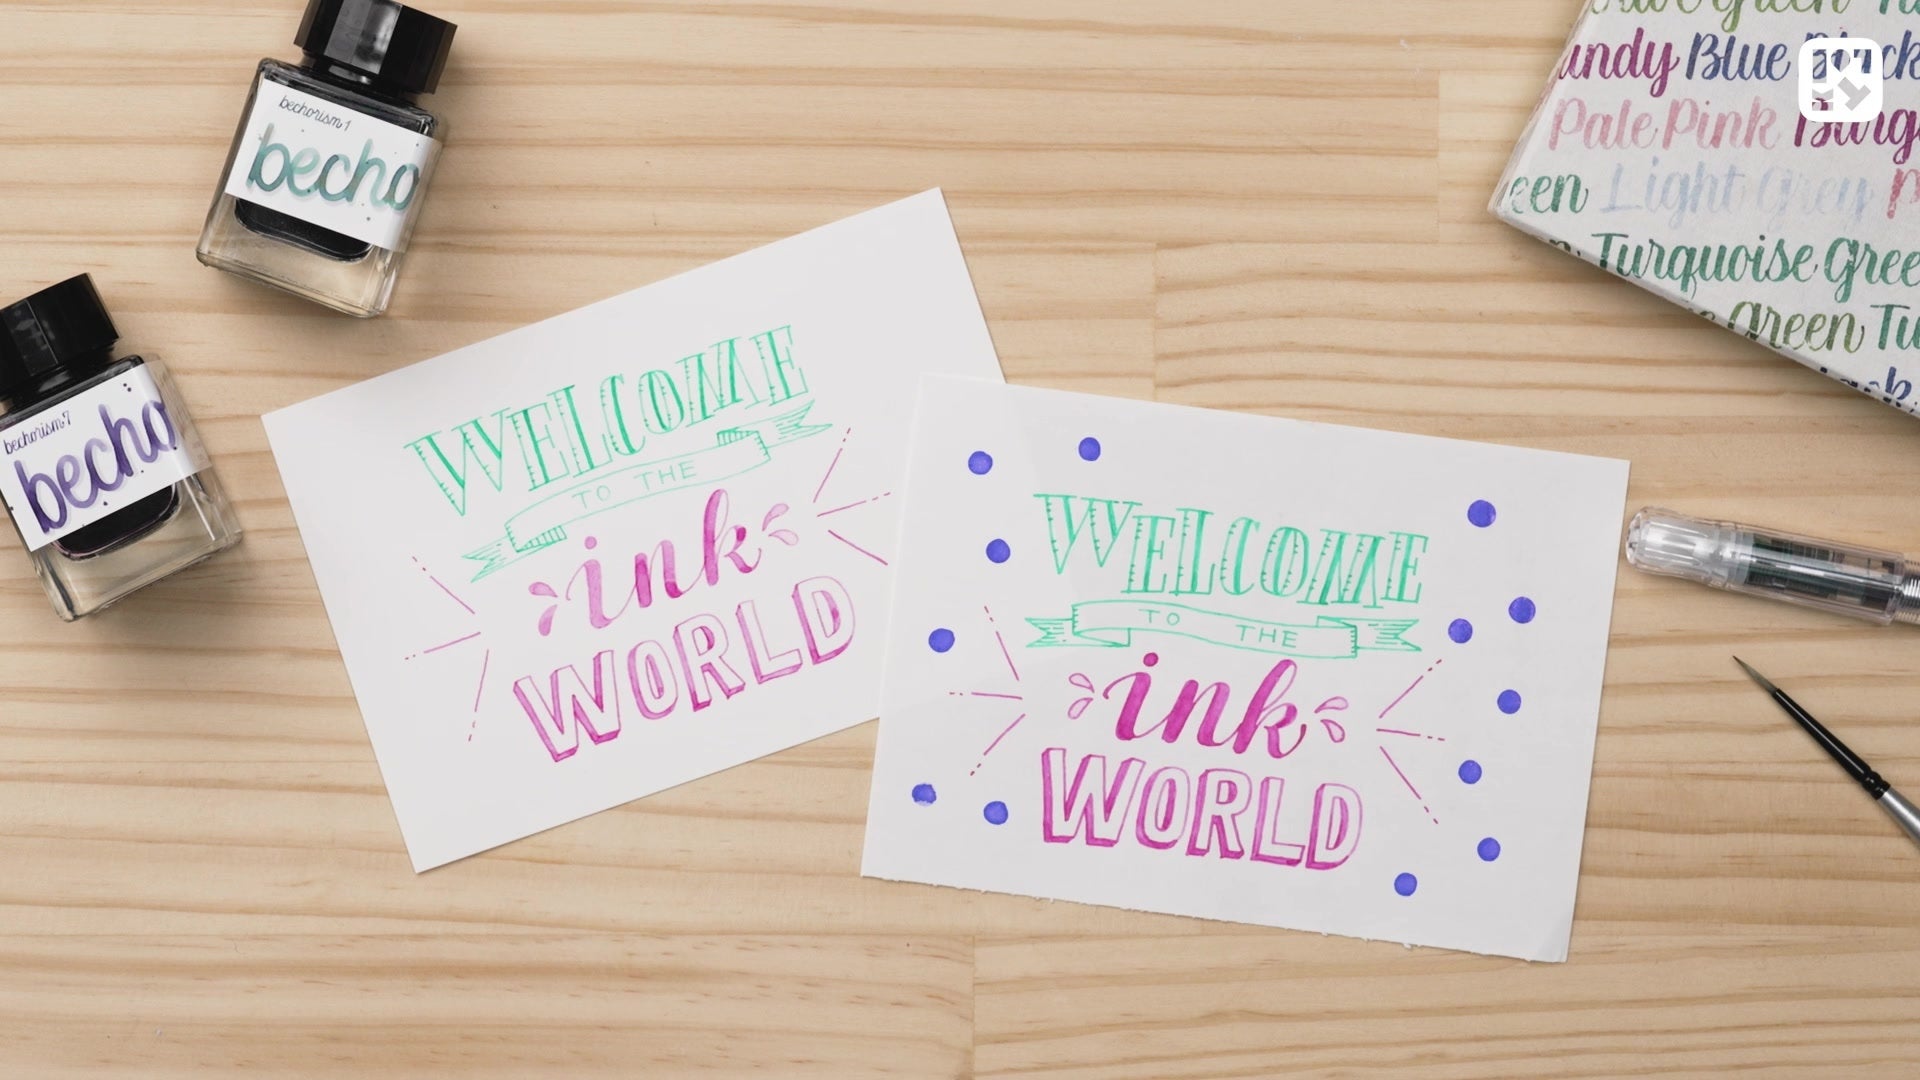 bechorism 1
becho
bechorism 7
becho
WELCOME
TO THE
ink
WORLD
WELCOME
TO THE
ink
WORLD
Green
Blue Black
Pale Pink
Light Grey
Turquoise Gree
Green Tu